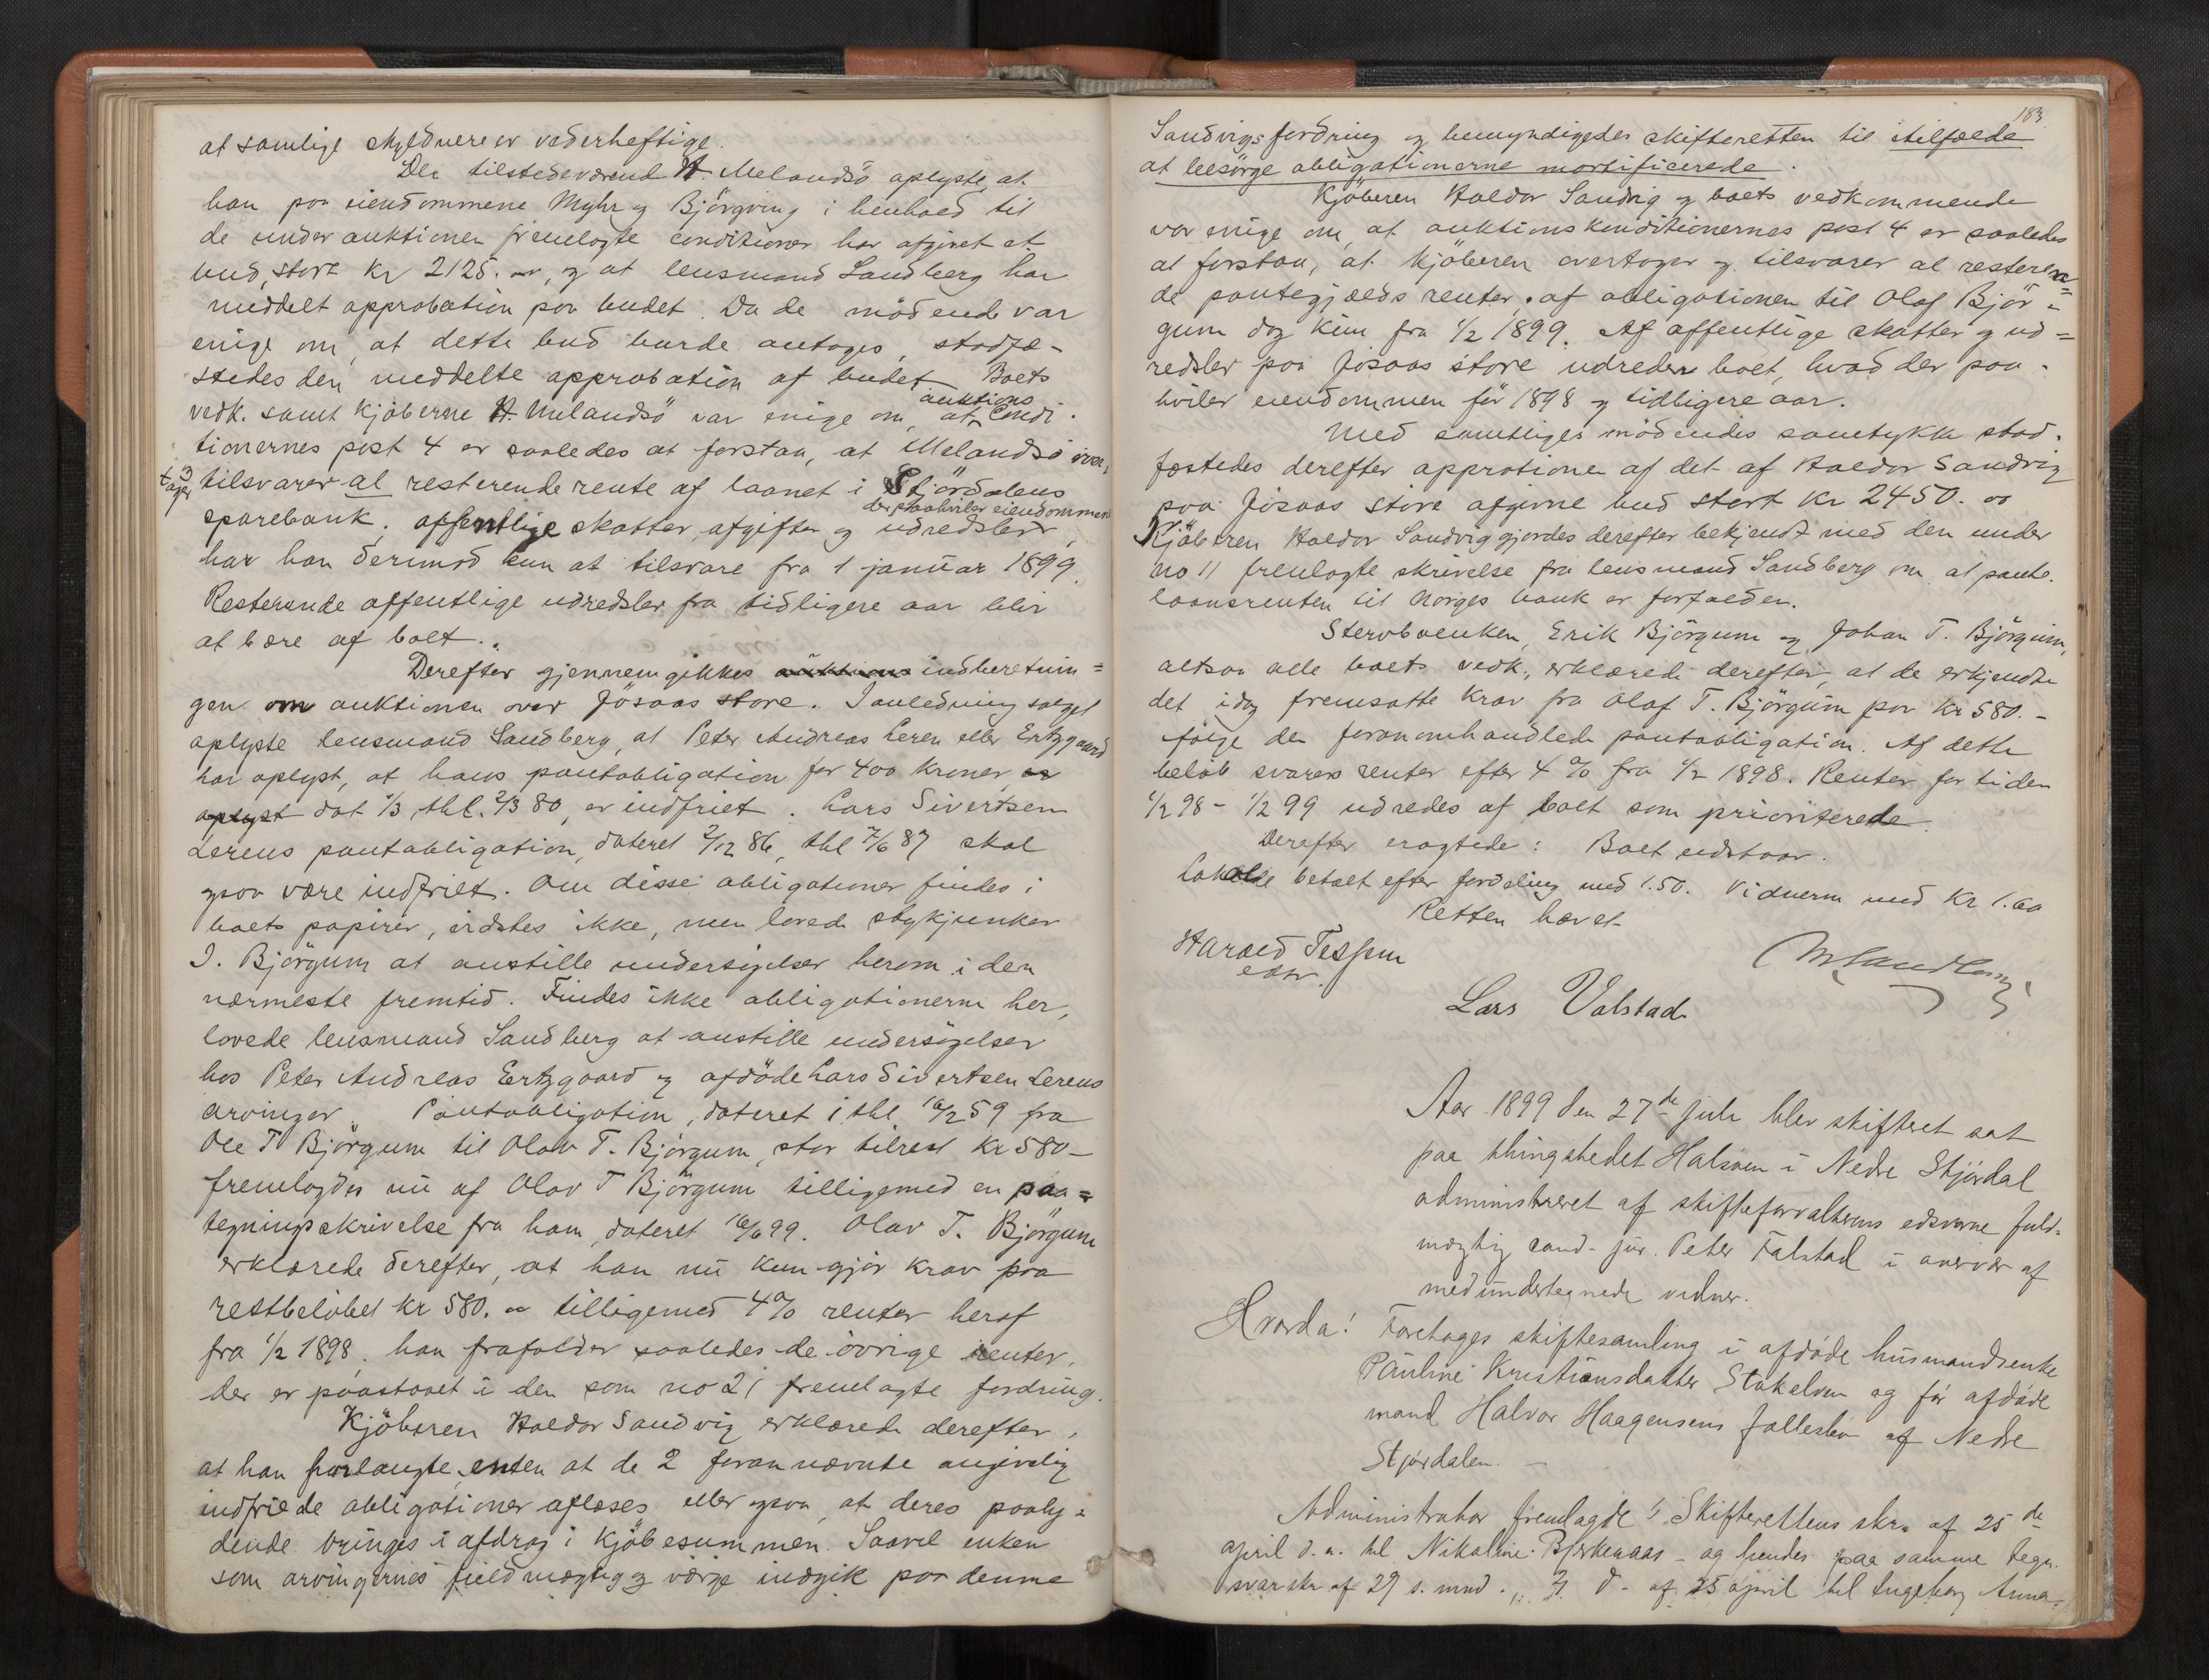 at samlige skyldnere er vederheftige.
Den tilstedeværend H. Melandsö oplyste, at
han paa eiendommene Myhr og Björgvin i henhold til
de under auktionen fremlagte conditioner har afgivet et
bud, stort Kr 2125.00, og at lensmand Sandberg har
meddelt approbation paa budet. Da de mödende var
enige om, at dette bud burde antages, stadfæ-
stedes den meddelte approbation af budet. Boets
vedk. samt kjöberne H. Melandsö var enige om, at auktions condi-
tionernes post 4 er saaledes at forstaa, at Melandsö over-
tager og tilsvarer al resterende rente af laanet i Stjördalens
sparebank. offentlige skatter, afgifter og udredsler, der paahviler eiendommen
har han derimod kun at tilsvare fra 1 januar 1899.
Resterende offentlige udredsler fra tidligere aar blir
at bære af boet.
Derefter gjennemgikkes auktions indberetnin=
gen om auktionen over Jösaas store. I anledning salget
oplyste lensmand Sandberg, at Peter Andreas Leren eller Ertzgaard
har oplyst, at hans pantobligation for 400 kroner, er
oplyst dat 1/3 thl. 2/3 80, er indfriet. Lars Sivertsen
Lerens pantobligation, dateret 2/12 86, thl 7/6 87 skal
ogsaa være indfriet. Om disse obligationer findes i
boets papirer, vidstes ikke, men lovede
I. Björgum at anstille undersögelser herom i den
nærmeste fremtid. Findes ikke obligationerne her,
lovede lensmand Sandberg at anstille undersögelser
hos Peter Andreas Ertzgaard og afdöde Lars Sivertsen Lerens
arvinger. Pantobligation, dateret i thl 16/2 59 fra
Ole T Björgum til Olav T. Björgum, stor tilrest Kr 580-
fremlagdes nu af Olav T Björgum tilligemed en paa=
tegningsskrivelse fra ham, dateret 16/6 99. Olav T. Björgum
erklærede derefter, at han nu kun gjör krav paa
restbelöbet Kr 580.00 tilligemed 4% renter heraf
fra 1/2 1898. han frafalder saaledes de övrige renter,
der er paastaaet i den som no 21 fremlagte fordring.
Kjöberen Haldor Sandvig erklærede derefter,
at han forlangte, enten at de 2 forannævnte angivelig
indfriede obligationer aflæses eller ogsaa, at deres paaly=
dende bringes i afdrag i Kjöbesummen. Saavel enken
som arvingernes fuldmægtig og værge indgik paa denne
183
Sandvigs fordring og bemyndigedes skifteretten til itilfælde
at besörge obligationerne mortificerede.
Kjöberen Haldor Sandvig og boets vedkommende
var enige om, at auktionskonditionernes post 4 er saaledes
at forstaa, at kjöberen overtager og tilsvarer al resteren=
de pantegjælds renter, af obligationen til Olaf Björ=
gum dog kun fra 1/2 1899. Af offentlige skatter og ud=
redsler paa Jösaas store udreder boet, hvad der paa-
hviler eiendommen för 1898 og tidligere aar.
Med samtliges mödendes samtykke stad-
fæstedes derefter approtionen af det af Haldor Sandvig
paa Jösaas store afgivne bud stort Kr 2450.00
Kjöberen Haldor Sandvig gjordes derefter bekjendt med den under
no 11 fremlagte skrivelse fra lensmand Sandberg om, at pante-
laansrenten til Norges bank er forfalden.
Stervboenken, Erik Björgum og Johan T. Björgum,
altsaa alle boets vedk., erklærede derefter, at de erkjendte
det idag fremsatte krav fra Olaf T. Björgum paa Kr 580.-
ifölge den foranomhandlede pantobligation. Af dette
belöb svares renter efter 4% fra 1/2 1898. Renter for tiden
1/2 98 - 1/2 99 udredes af boet som prioriterede.
Derefter eragtede: Boet udstaar.
Lokalde betalt efter fordeling med 1.50. Vidnerne med Kr 1.60
Retten hævet
Harald Tessem
edsv.
Lars Valstad
Aar 1899 den 27de juli blev skifteret sat
paa thingstedet Halsøen i Nedre Stjørdal
administreret af skifteforvalterens edsvorne fuld-
mægtig cand. jur. Peter Falstad i overvær af
medundertegnede vidner.
Hvorda! Foretoges skiftesamling i afdøde husmandsenke
Pauline Kristiansdatter Stokelven og før afdøde
mand Halvor Haagensens fællesbo af Nedre
Stjørdalen. -
Administrator fremlagde 1, Skifterettens skr. af 25de
april d. a. til Nikoline Bjerkenaas - og hendes paa samme tegn.
svarskr af 29 s. mnd. ,, 2, d- af 25 april til Ingeborg Anna-